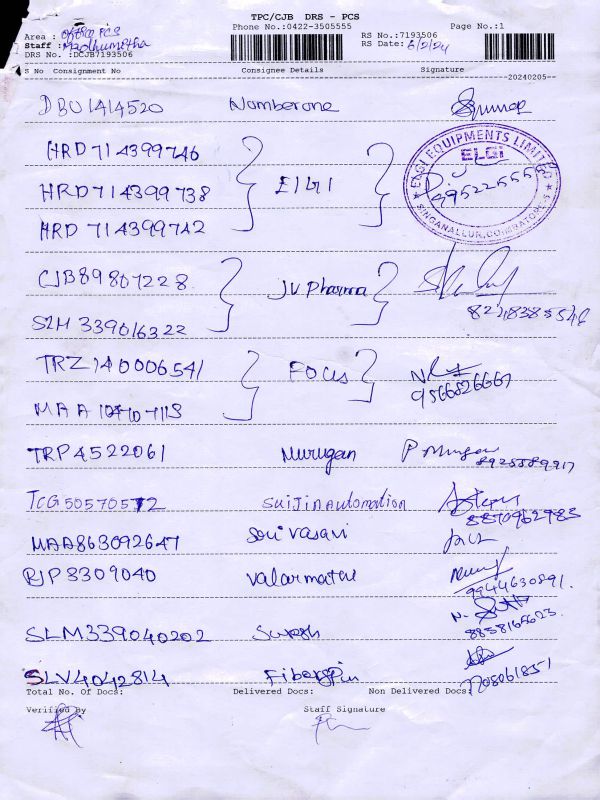 TPC/CJB DRS - PCS
Area : PCS Phone No.:0422-3505555 Page No.:1
Staff : Madhumitha RS No.:7193506
DRS No. :DCJB7193506 RS Date: 6/2/24
S No Consignment No Consignee Details Signature
20240205
DBU1414520 Namberone
HRD714399746
HRD714399738 Elgi
HRD714399742
ELGI EQUIPMENTS LIMITED
ELGI
SINGANALLUR, COIMBATORE-5
9952255556
CJB89807228 JV Pharma
SLM339016322 8248385546
TRZ140006541 FOCUS
9566826667
MAA
TRP4522061 Murugan P Murugan
8925589917
TCG50570572 Suijin automation
8870962983
MAA863092647 Sri vasavi
RJP8309040 Valarmathi
9944630891.
SLM339040202 Suresh
SLV4042814
Total No. Of Docs: Delivered Docs: Non Delivered Docs:
Verified By Staff Signature